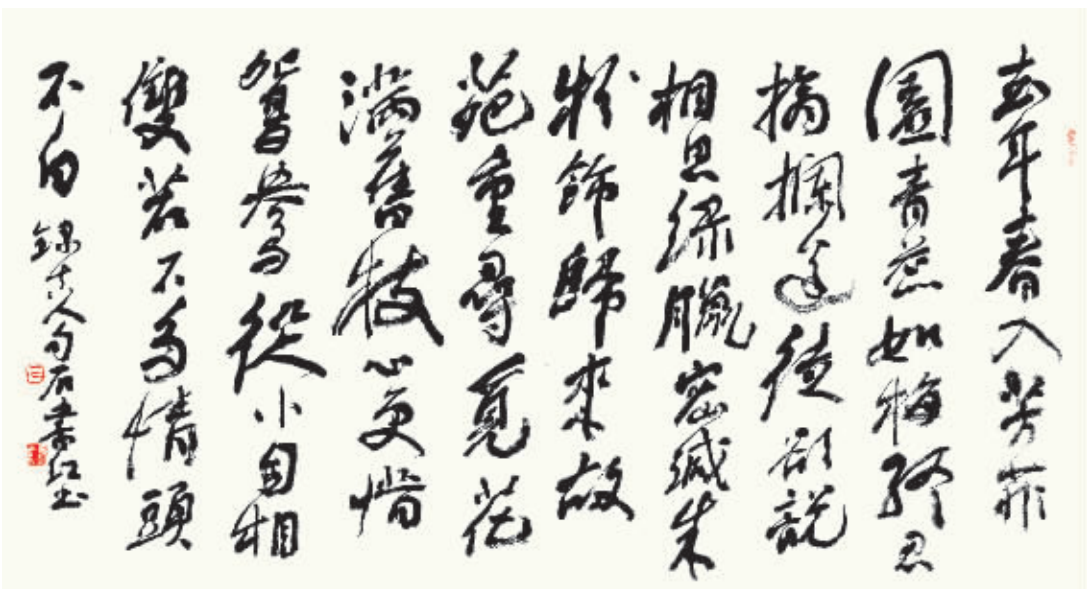 去年春入芳菲
國青蕊如梅終忍
摘攔邊徒欲說
相思綠臘密緘朱
粉飾歸來故
苑重尋覓花
滿舊枝心更惜
鴛鴦從小自相
雙若不多情頭
不白
錄古人句